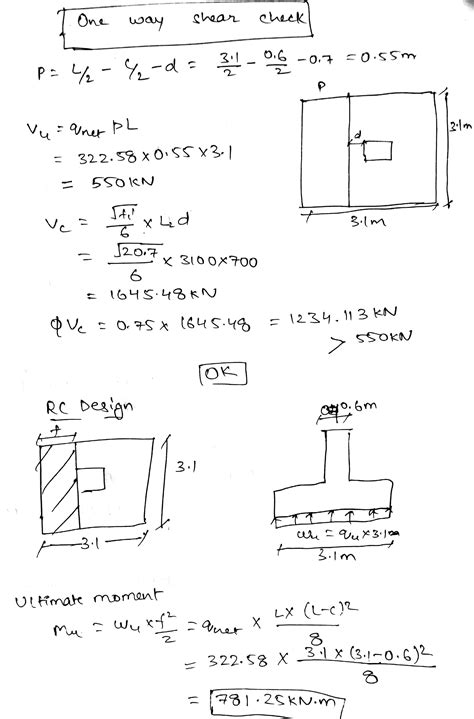 One way shear check
P = L/2 - C/2 - d = 3.1/2 - 0.6/2 - 0.7 = 0.55m
P
d
3.1m
3.1m
Vu = qnet PL
= 322.58 x 0.55 x 3.1
= 550KN
Vc = √fc'/6 x L d
= √20.7/6 x 3100 x 700
= 1645.48KN
ΦVc = 0.75 x 1645.48 = 1234.113 KN
> 550KN
OK
RC Design
f
3.1
3.1
0.6m
wu = qu x 3.1m
3.1m
Ultimate moment
Mu = Wu x f²/2 = qnet x Lx (L-c)²/8
= 322.58 x 3.1 x (3.1-0.6)²/8
= 781.25KN.m